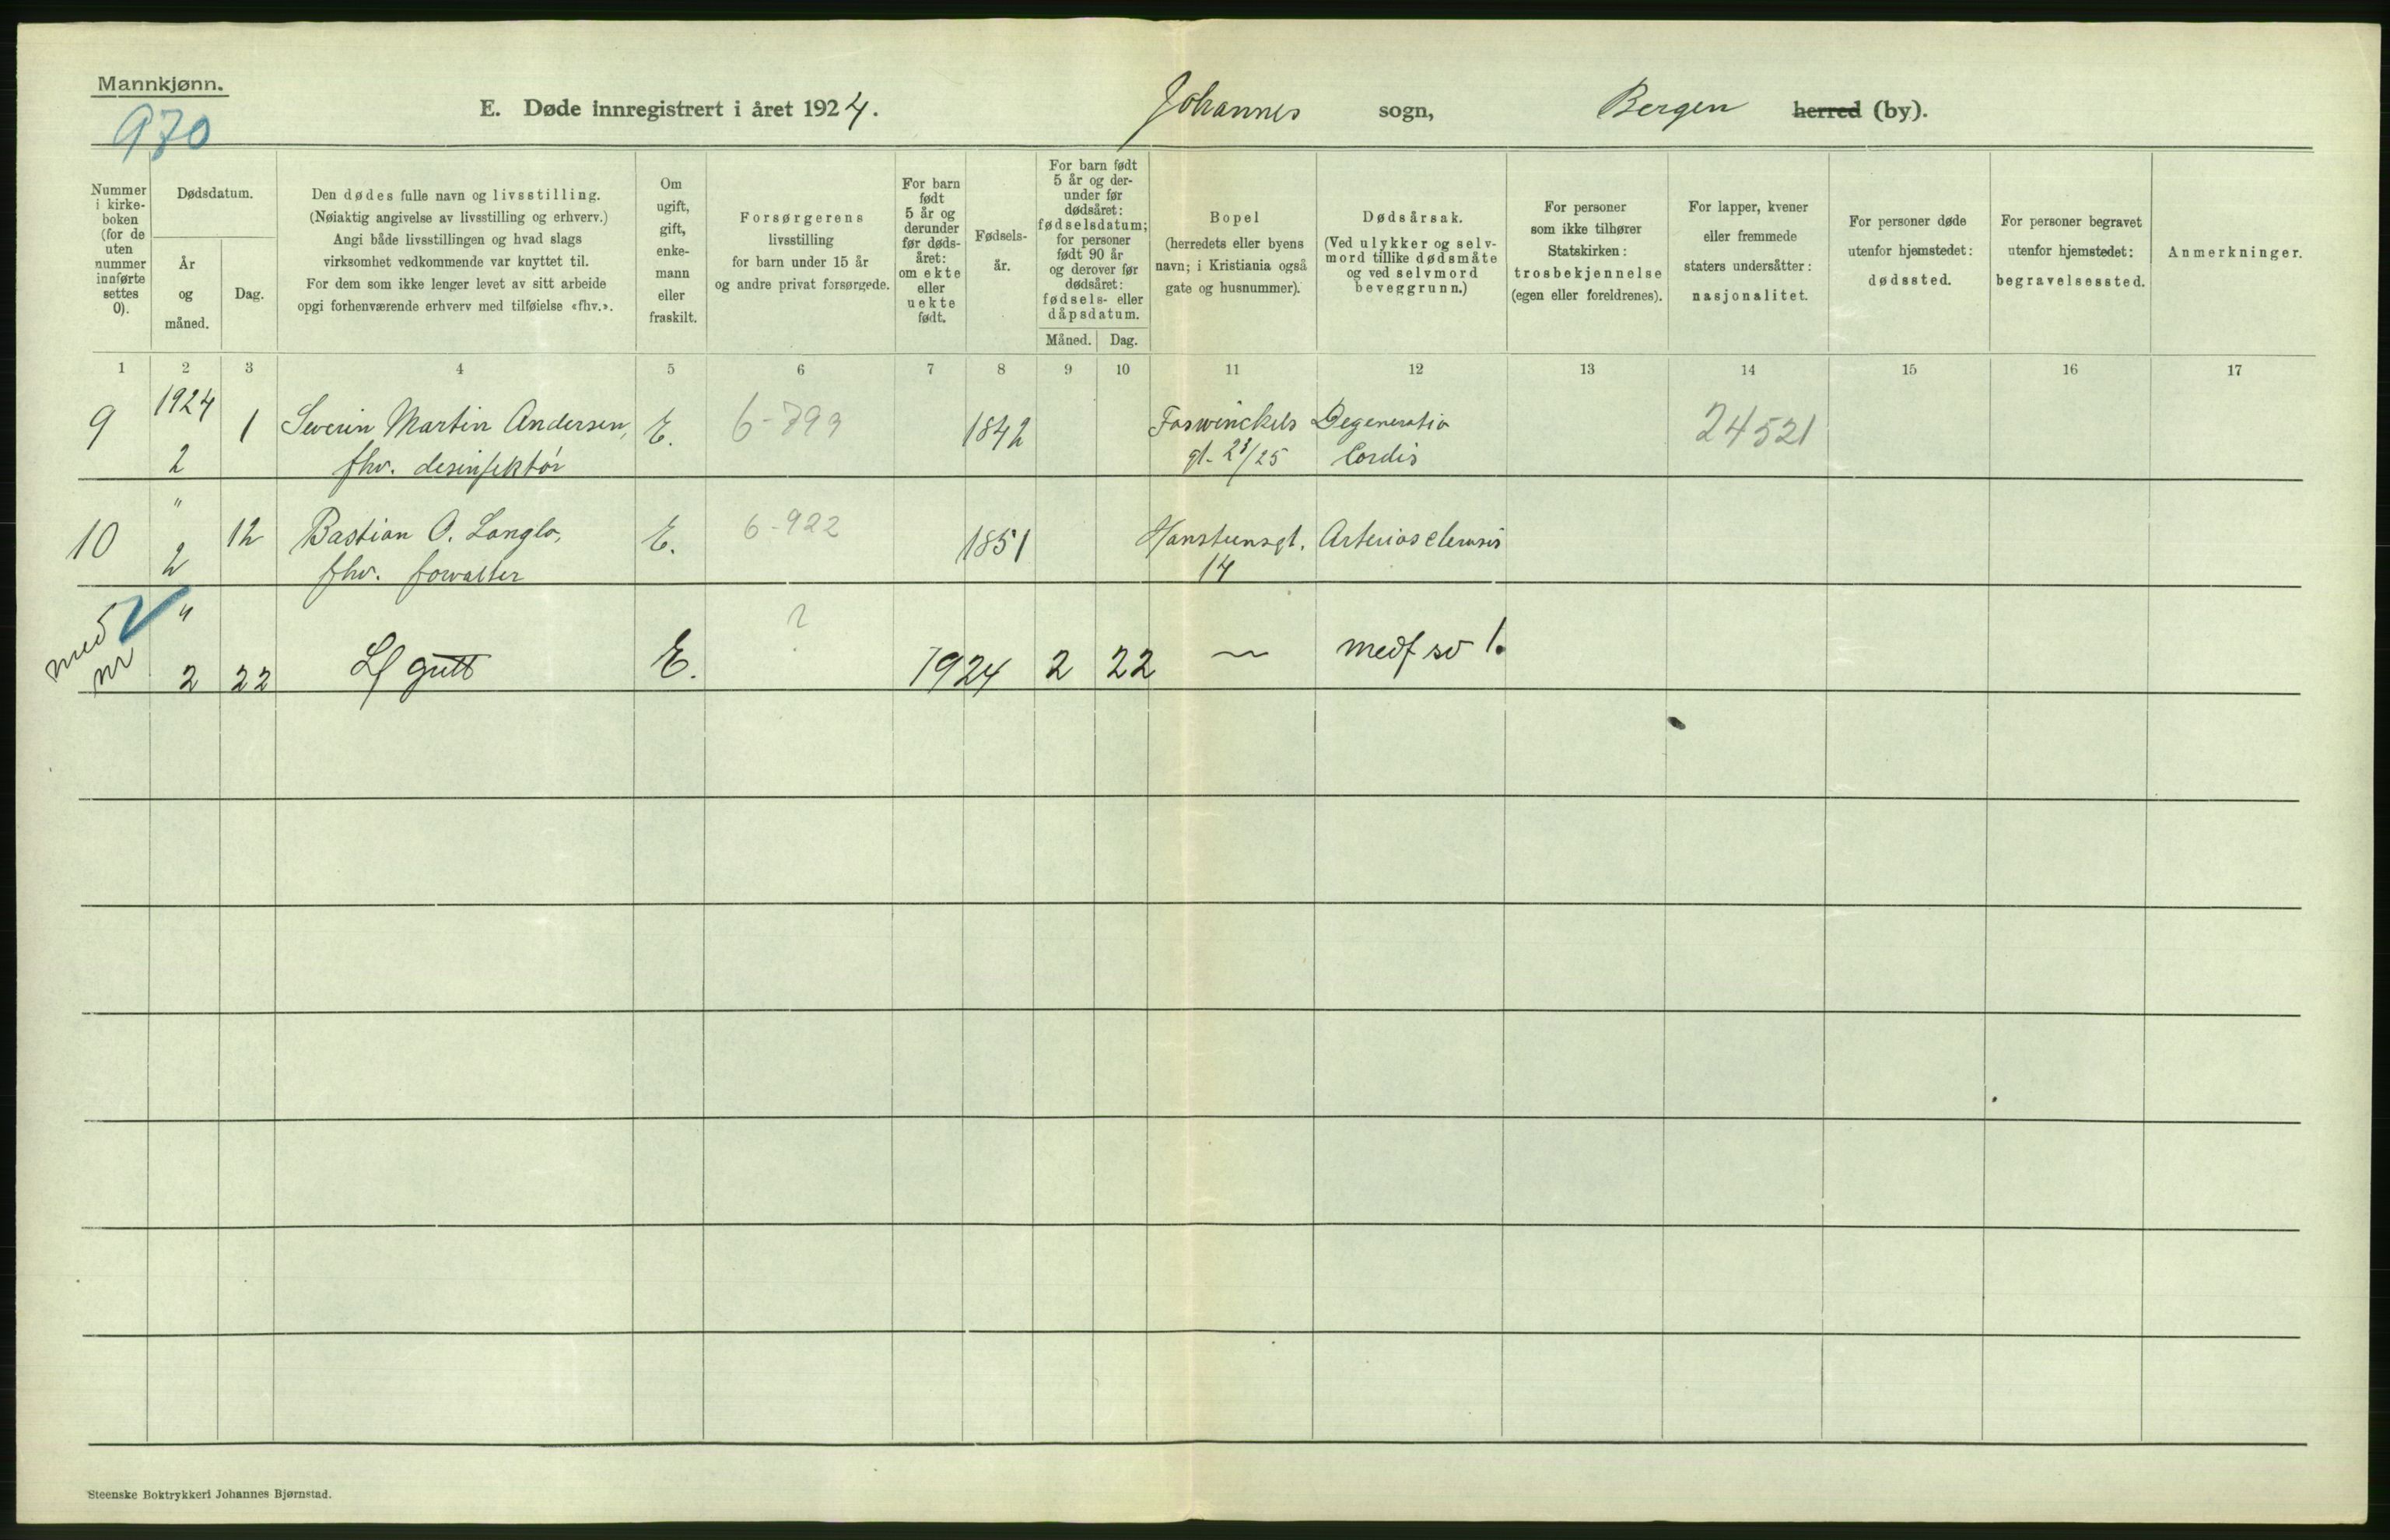 Mannkjønn.
970
E. Døde innregistrert i året 1924.
Johannes sogn,
Bergen herred (by).
Nummer
i kirke-
boken
(for de
uten
nummer
innførte
settes
0).
Dødsdatum.
År
og
måned.
Dag.
Den dødes fulle navn og livsstilling.
(Nøiaktig angivelse av livsstilling og erhverv.)
Angi både livsstillingen og hvad slags
virksomhet vedkommende var knyttet til.
For dem som ikke lenger levet av sitt arbeide
opgi forhenværende erhverv med tilføielse «fhv.».
Om
ugift,
gift,
enke-
mann
eller
fraskilt.
Forsørgerens
livsstilling
for barn under 15 år
og andre privat forsørgede.
For barn
født
5 år og
derunder
før døds-
året:
om ekte
eller
uekte
født.
Fødsels-
år.
For barn født
5 år og der-
under før
dødsåret:
fødselsdatum;
for personer
født 90 år
og derover før
dødsåret:
fødsels- eller
dåpsdatum.
Måned.
Dag.
Bopel
(herredets eller byens
navn; i Kristiania også
gate og husnummer).
Dødsårsak.
(Ved ulykker og selv-
mord tillike dødsmåte
og ved selvmord
beveggrunn.)
For personer
som ikke tilhører
Statskirken:
trosbekjennelse
(egen eller foreldrenes).
For lapper, kvener
eller fremmede
staters undersåtter:
nasjonalitet.
For personer døde
utenfor hjemstedet:
dødssted.
For personer begravet
utenfor hjemstedet:
begravelsessted.
Anmerkninger.
1 2 3 4 5 6 7 8 9 10 11 12 13 14 15 16 17
9 1924 1 Severin Martin Andersen, E. 6-799 1842 Foswinckels Degeneratio 24521
2 fhv. desinfektör gt. 23/25 Cordis
10 " 12 Bastian O. Langlo, E. 6-922 1851 Hansteensgt. Arteriosclerosis
2 fhv. forvalter 14
med "
nr 2 22 Lf gutt E. ? 1924 2 22 — medf sv 1.
Steenske Boktrykkeri Johannes Bjørnstad.